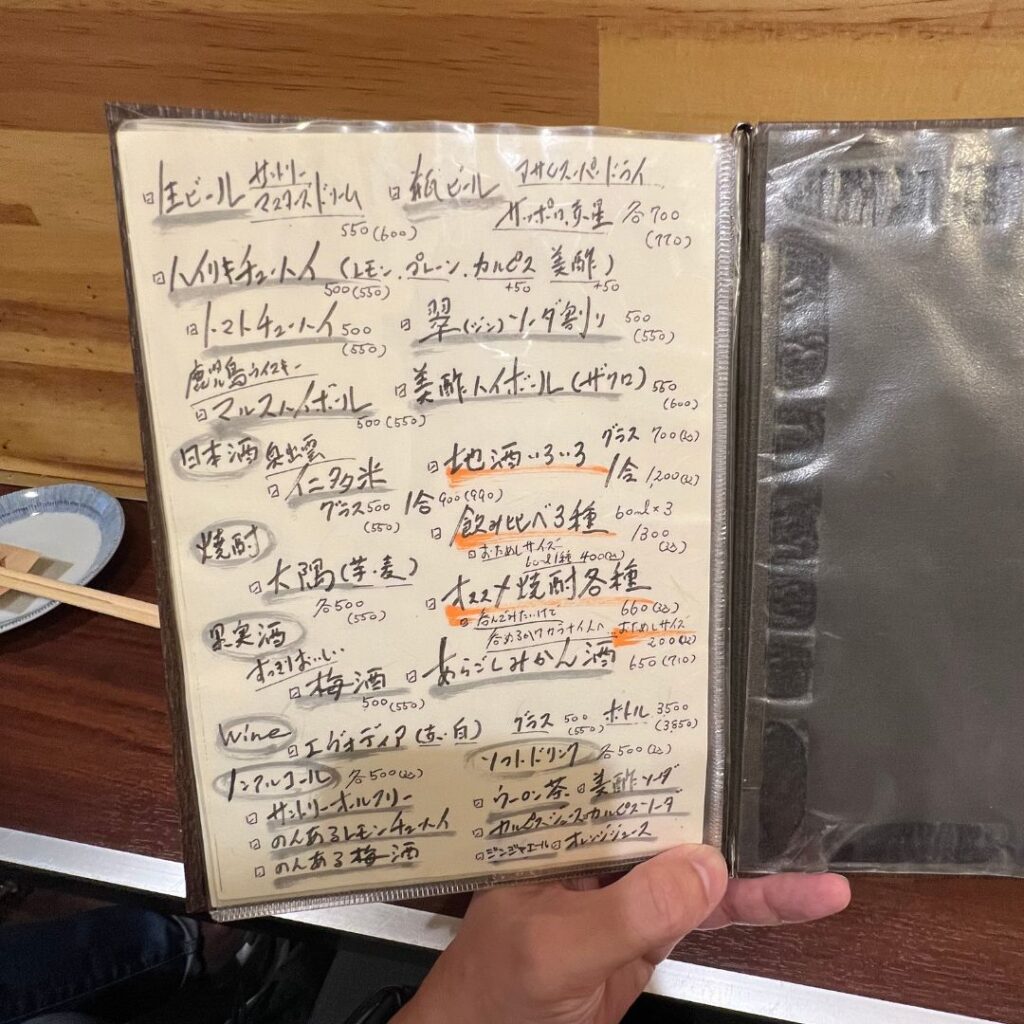 生ビール サントリー マスターズドリーム 550(600)
瓶ビール アサヒスーパードライ サッポロ赤星 各700 (770)
ハイリキチューハイ (レモン・プレーン・カルピス 美酢)
500(550) +50 +50
トマトチューハイ 500 (550)
翠(ジン)ソーダ割り 500 (550)
鹿児島ウイスキー
マルスハイボール 500(550)
美酢ハイボール(ザクロ) 550 (600)
日本酒 奥出雲
仁多米
グラス500 (550) 1合900(990)
地酒いろいろ グラス 700(込) 1合 1,200(込)
飲み比べ3種 60ml×3 1300 (込)
おためしサイズ 60ml1種 400(込)
焼酎
大隅(芋・麦) 各500 (550)
オススメ焼酎各種 660(込)
おためしサイズ 200(込)
果実酒
すっきりおいしい
梅酒 500(550)
あらごしみかん酒 650(710)
Wine
エヴォディア(赤・白) グラス 500 (550) ボトル 3500 (3,850)
ノンアルコール 各500(込)
サントリーオールフリー
のんあるレモンチューハイ
のんある梅酒
ソフトドリンク 各500(込)
ウーロン茶 美酢ソーダ
カルピスジュース カルピスソーダ
ジンジャエール オレンジジュース